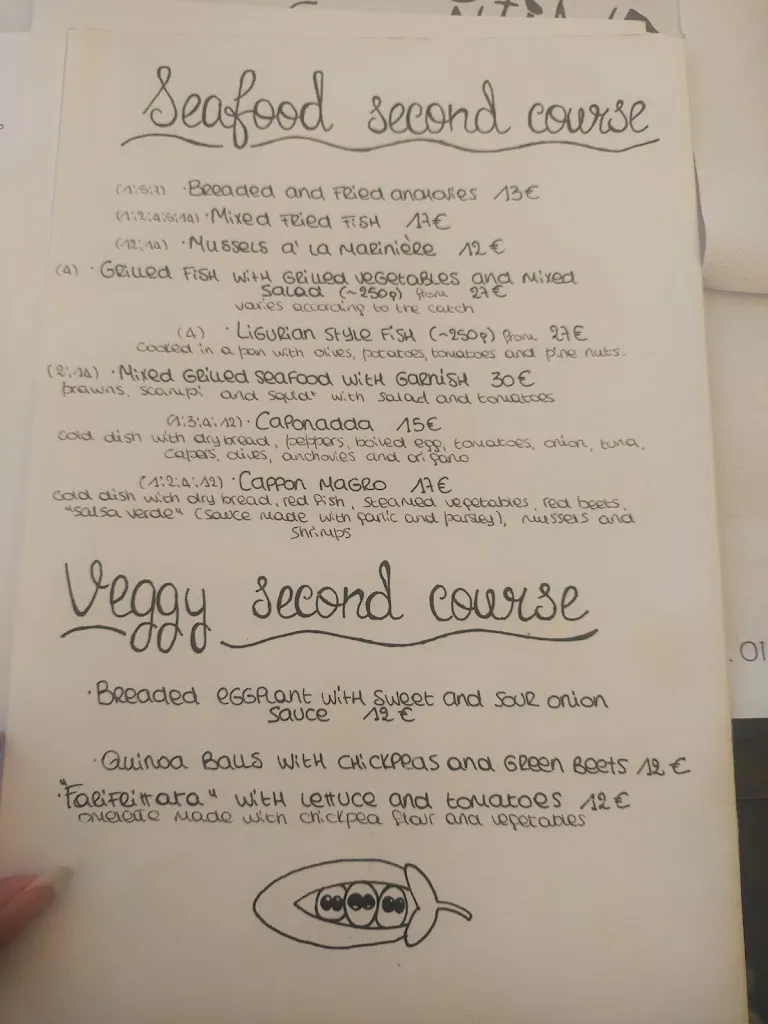 Seafood second course
(1;5;7) · Breaded and fried anchovies 13€
(1;2;4;5;14) · Mixed fried fish 17€
(12;14) · Mussels a' la marinière 12€
(4) · Grilled fish with grilled vegetables and mixed
salad (~250g) from 27€
varies according to the catch
(4) · Ligurian style fish (~250g) from 27€
cooked in a pan with olives, potatoes, tomatoes and pine nuts.
(2;14) · Mixed grilled seafood with garnish 30€
prawns, scampi and squid with salad and tomatoes
(1;3;4;12) · Caponadda 15€
cold dish with dry bread, peppers, boiled egg, tomatoes, onion, tuna,
capers, olives, anchovies and origano
(1;2;4;12) · Cappon magro 17€
cold dish with dry bread, red fish, steamed vegetables, red beets,
"salsa verde" (sauce made with garlic and parsley), mussels and
shrimps
Veggy second course
· Breaded eggplant with sweet and sour onion
sauce 12€
· Quinoa balls with chickpeas and green beets 12€
· "Farifrittata" with lettuce and tomatoes 12€
omelette made with chickpea flour and vegetables
. 01